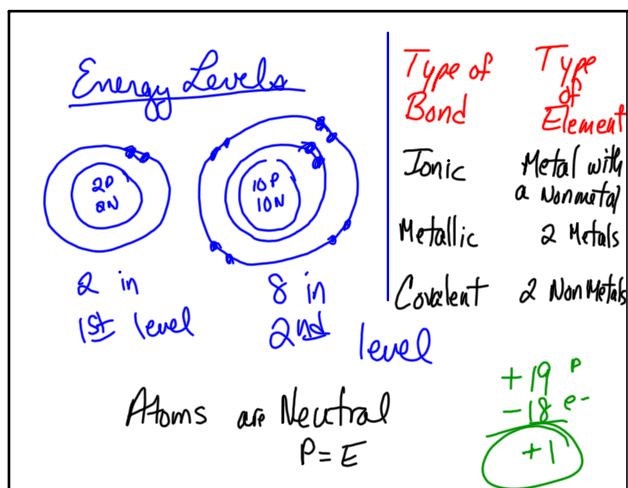 Energy Levels
2P
2N
10P
10N
2 in
1st level
8 in
2nd level
Type of
Bond
Type
of
Element
Ionic
Metal with
a Nonmetal
Metallic
2 Metals
Covalent
2 NonMetals
Atoms are Neutral
P = E
+19 P
-18 e-
+1